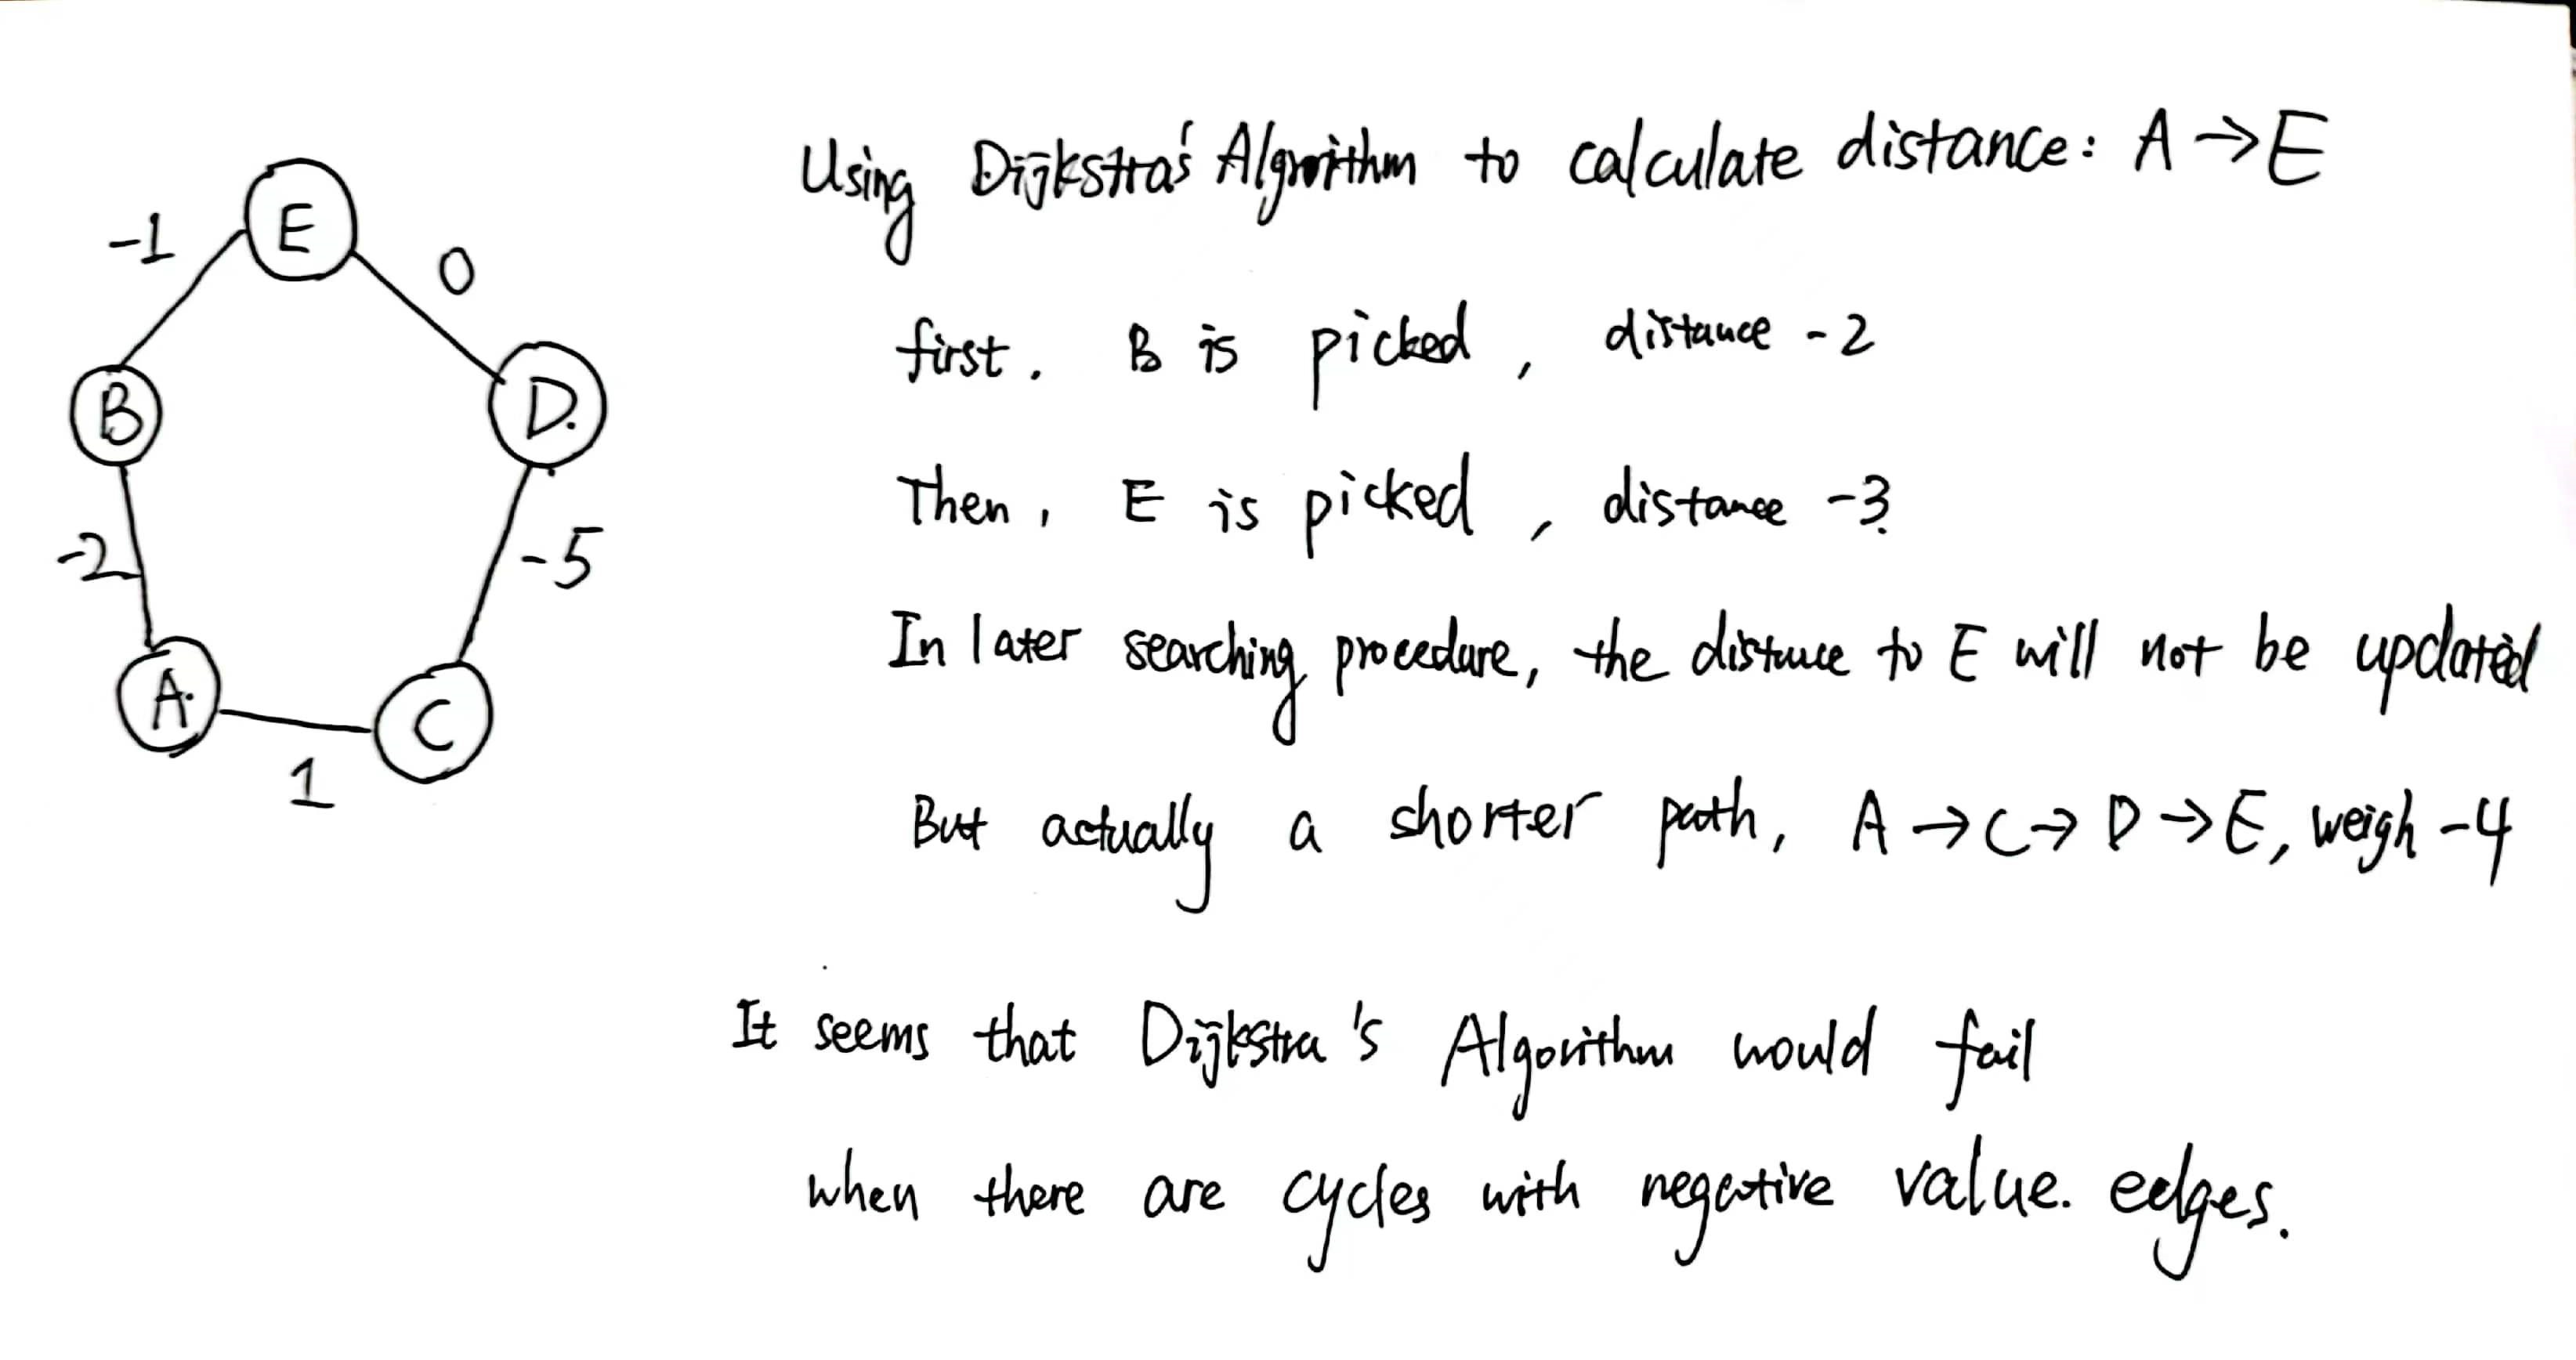 Using Dijkstra's Algorithm to calculate distance: A → E
first. B is picked, distance -2
Then, E is picked, distance -3.
In later searching procedure, the distance to E will not be updated
But actually a shorter path, A → C → D → E, weigh -4
It seems that Dijkstra's Algorithm would fail
when there are cycles with negative value. edges.
E
-1
0
B
D.
-2
-5
A.
C
1